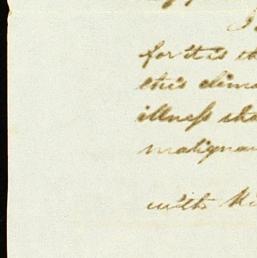 for it is th
this clima
illness sha
malignan
with Ki